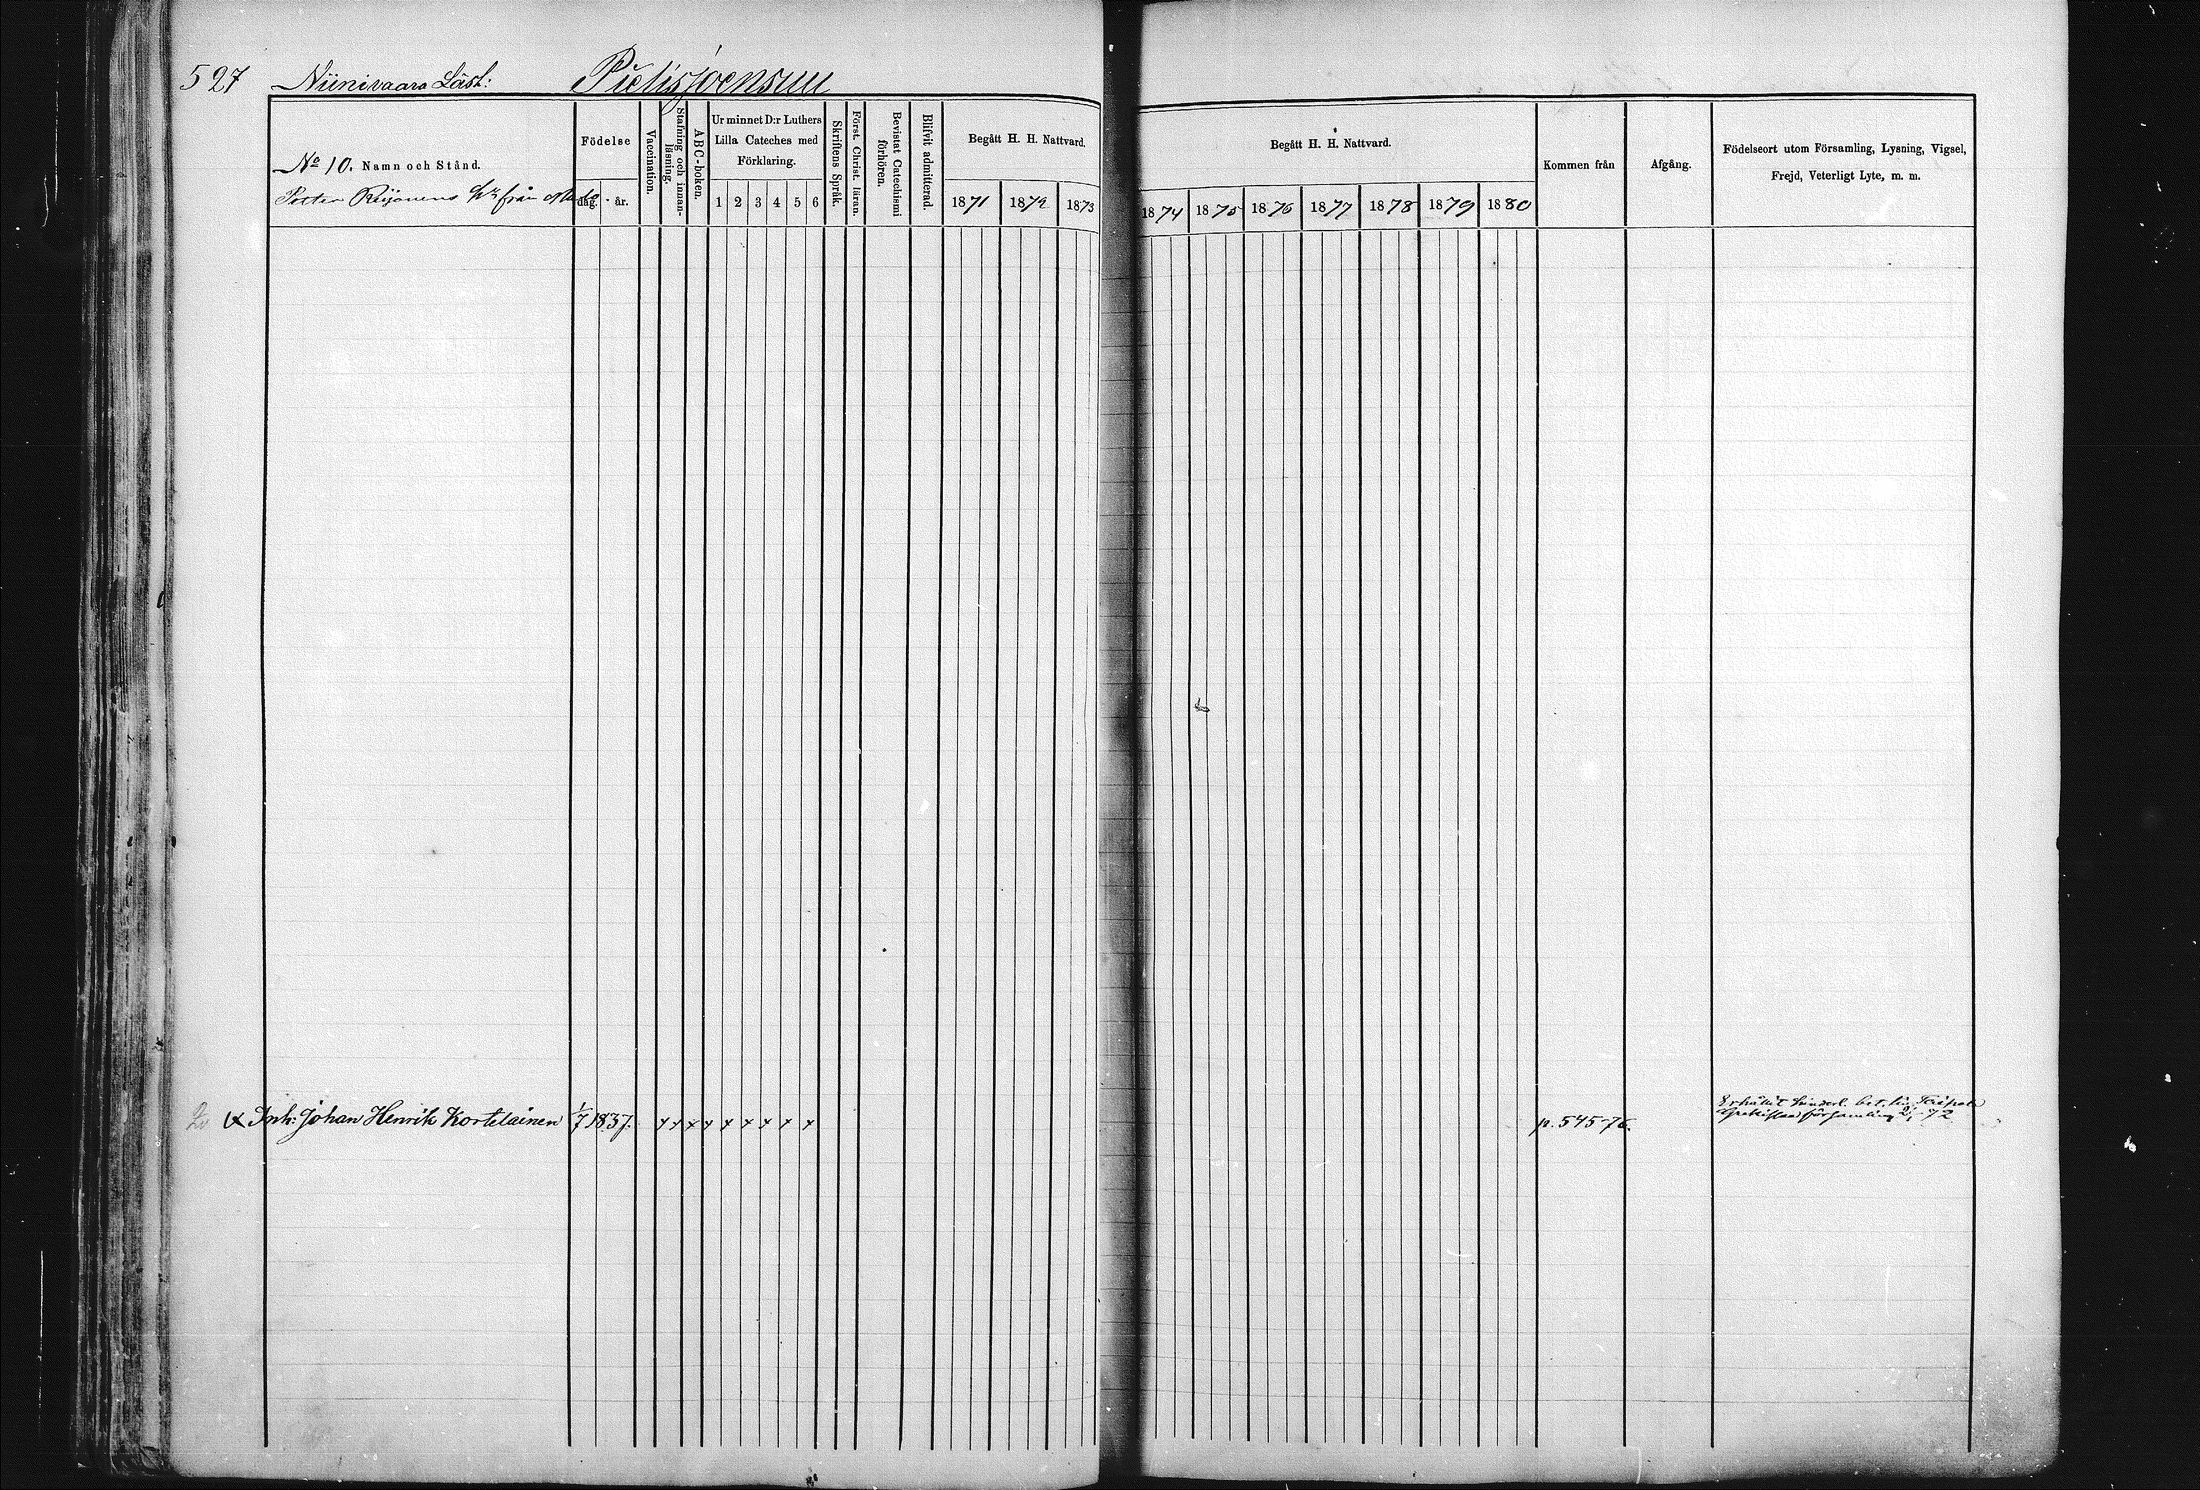 527 Niinivaara Läsl: Pielisjoensuu
No 10. Namn och Stånd.
Petter Reijonens från No 12
Födelse
dag. år.
Vaccination.
Stafning och innanläsning.
ABC-boken.
Ur minnet D:r Luthers
Lilla Cateches med
Förklaring.
1 2 3 4 5 6
Skriftens Språk.
Först. Christ. läran.
Bevistat Catechismi förhören.
Blifvit admitterad.
Begått H. H. Nattvard.
1871 1872 1873
Begått H. H. Nattvard.
1874 1875 1876 1877 1878 1879 1880
Kommen från
Afgång.
Födelseort utom Församling, Lysning, Vigsel,
Frejd, Veterligt Lyte, m. m.
Inh: Johan Henrik Kortelainen 1/7 1837. x x x x x x x x x p. 545 76.
Erhållit hinderl. bet. till Taipale
Grekiska församling 72